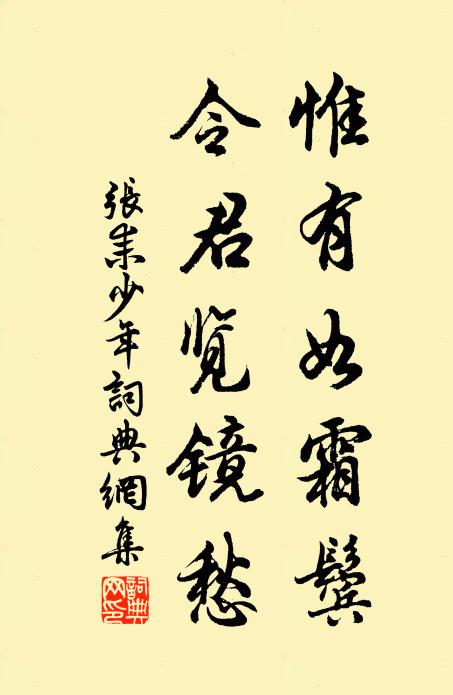 惟有如霜鬓
令君览镜愁
張耒少年詞典網集
詞典網印